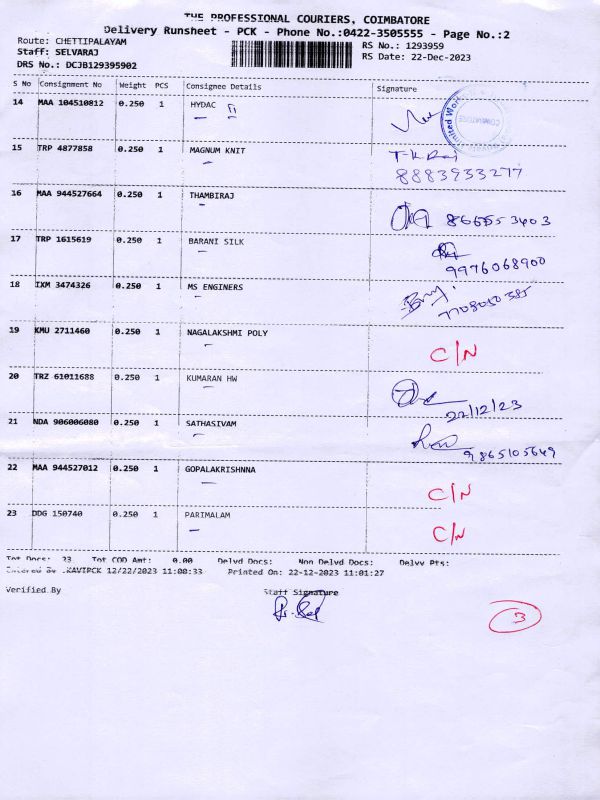 THE PROFESSIONAL COURIERS, COIMBATORE
Delivery Runsheet - PCK - Phone No.:0422-3505555 - Page No.:2
Route: CHETTIPALAYAM
RS No.: 1293959
Staff: SELVARAJ
RS Date: 22-Dec-2023
DRS No.: DCJB129395902
S No Consignment No Weight PCS Consignee Details Signature
14 MAA 104510812 0.250 1 HYDAC
COIMBATORE
15 TRP 4877858 0.250 1 MAGNUM KNIT T-K Raj
8883933277
16 MAA 944527664 0.250 1 THAMBIRAJ
17 TRP 1615619 0.250 1 BARANI SILK
9976068900
18 IXM 3474326 0.250 1 MS ENGINERS
7708050385
19 KMU 2711460 0.250 1 NAGALAKSHMI POLY C/N
20 TRZ 61011688 0.250 1 KUMARAN HW
22/12/23
21 NDA 906006080 0.250 1 SATHASIVAM
9865105649
22 MAA 944527012 0.250 1 GOPALAKRISHNNA C/N
23 DDG 150740 0.250 1 PARIMALAM C/N
Tot Docs: 23 Tot COD Amt: 0.00 Delvd Docs: Non Delvd Docs: Delvy Pts:
Entered By :KAVIPCK 12/22/2023 11:00:33 Printed On: 22-12-2023 11:01:27
Verified By Staff Signature
3